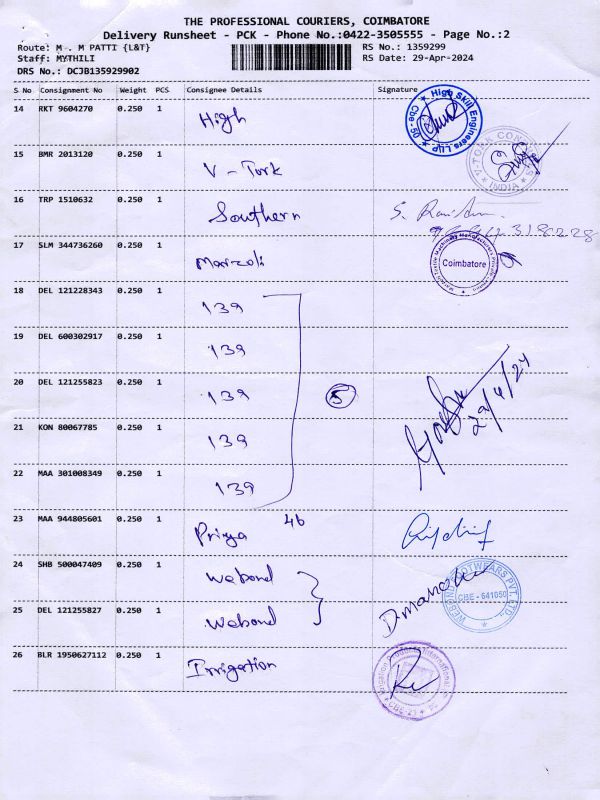 THE PROFESSIONAL COURIERS, COIMBATORE
Delivery Runsheet - PCK - Phone No.:0422-3505555 - Page No.:2
Route: M . M PATTI {L&T}
RS No.: 1359299
Staff: MYTHILI
RS Date: 29-Apr-2024
DRS No.: DCJB135929902
S No Consignment No Weight PCS Consignee Details Signature
14 RKT 9604270 0.250 1 High
High Skill Engineers LLP
Cbe - 09
15 BMR 2013120 0.250 1 V - Tork
INDIA
16 TRP 1510632 0.250 1 Southern
S.
17 SLM 344736260 0.250 1 Marzoli
Coimbatore
18 DEL 121228343 0.250 1 139
19 DEL 600302917 0.250 1 139
20 DEL 121255823 0.250 1 139
5
21 KON 80067785 0.250 1 139
29/4/24
22 MAA 301008349 0.250 1 139
23 MAA 944805601 0.250 1 Priya 46
24 SHB 500047409 0.250 1 Webond
CBE - 641050
25 DEL 121255827 0.250 1 Webond
D.
26 BLR 1950627112 0.250 1 Irrigation